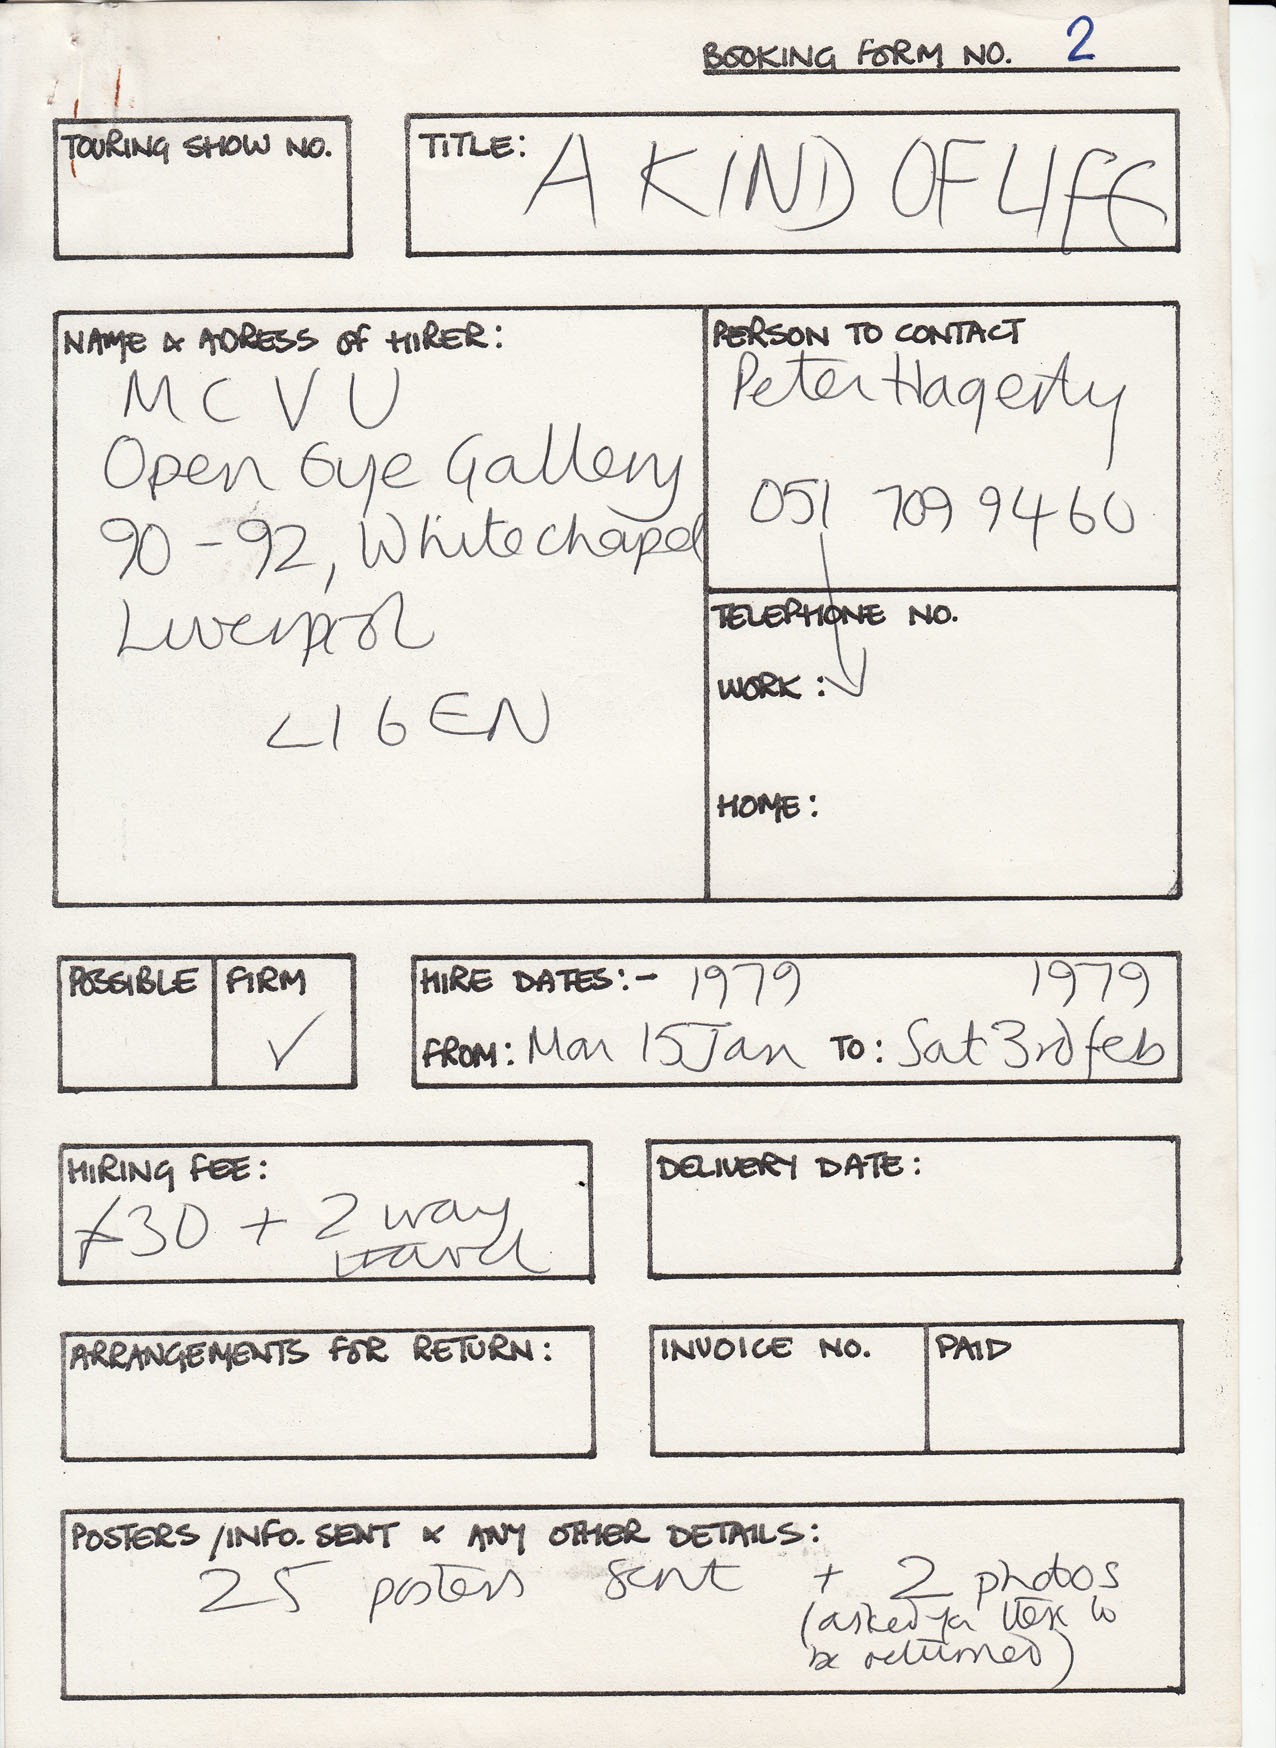 BOOKING FORM NO. 2
TOURING SHOW NO.
TITLE: A KIND OF LIFE
NAME & ADRESS OF HIRER:
M C V U
Open Eye Gallery
90-92, Whitechapel
Liverpool
L1 6EN
PERSON TO CONTACT
Peter Hagerty
051 709 9460
TELEPHONE NO.
WORK:
HOME:
POSSIBLE
FIRM
✓
HIRE DATES:- 1979 1979
FROM: Mon 15 Jan TO: Sat 3rd Feb
HIRING FEE:
£30 + 2 way
travel
DELIVERY DATE:
ARRANGEMENTS FOR RETURN:
INVOICE NO.
PAID
POSTERS/INFO. SENT & ANY OTHER DETAILS:
25 posters sent + 2 photos
(asked for to
be returned)